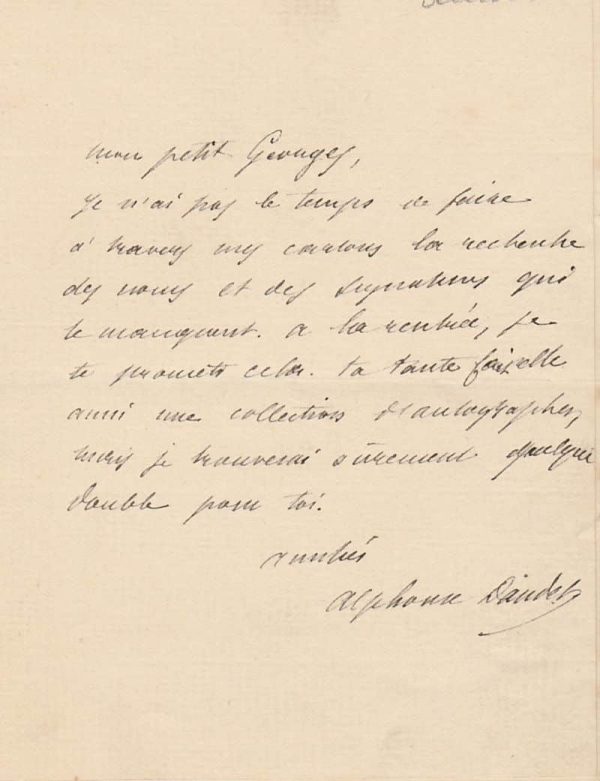 mon petit Georges,
Je n'ai pas le temps de faire
à travers mes cartons la recherche
des noms et des signatures qui
te manquent. à la rentrée, je
te promets cela. ta tante fait elle
aussi une collection d'autographes,
mais je trouverai sûrement quelque
double pour toi.
amitiés
Alphonse Daudet